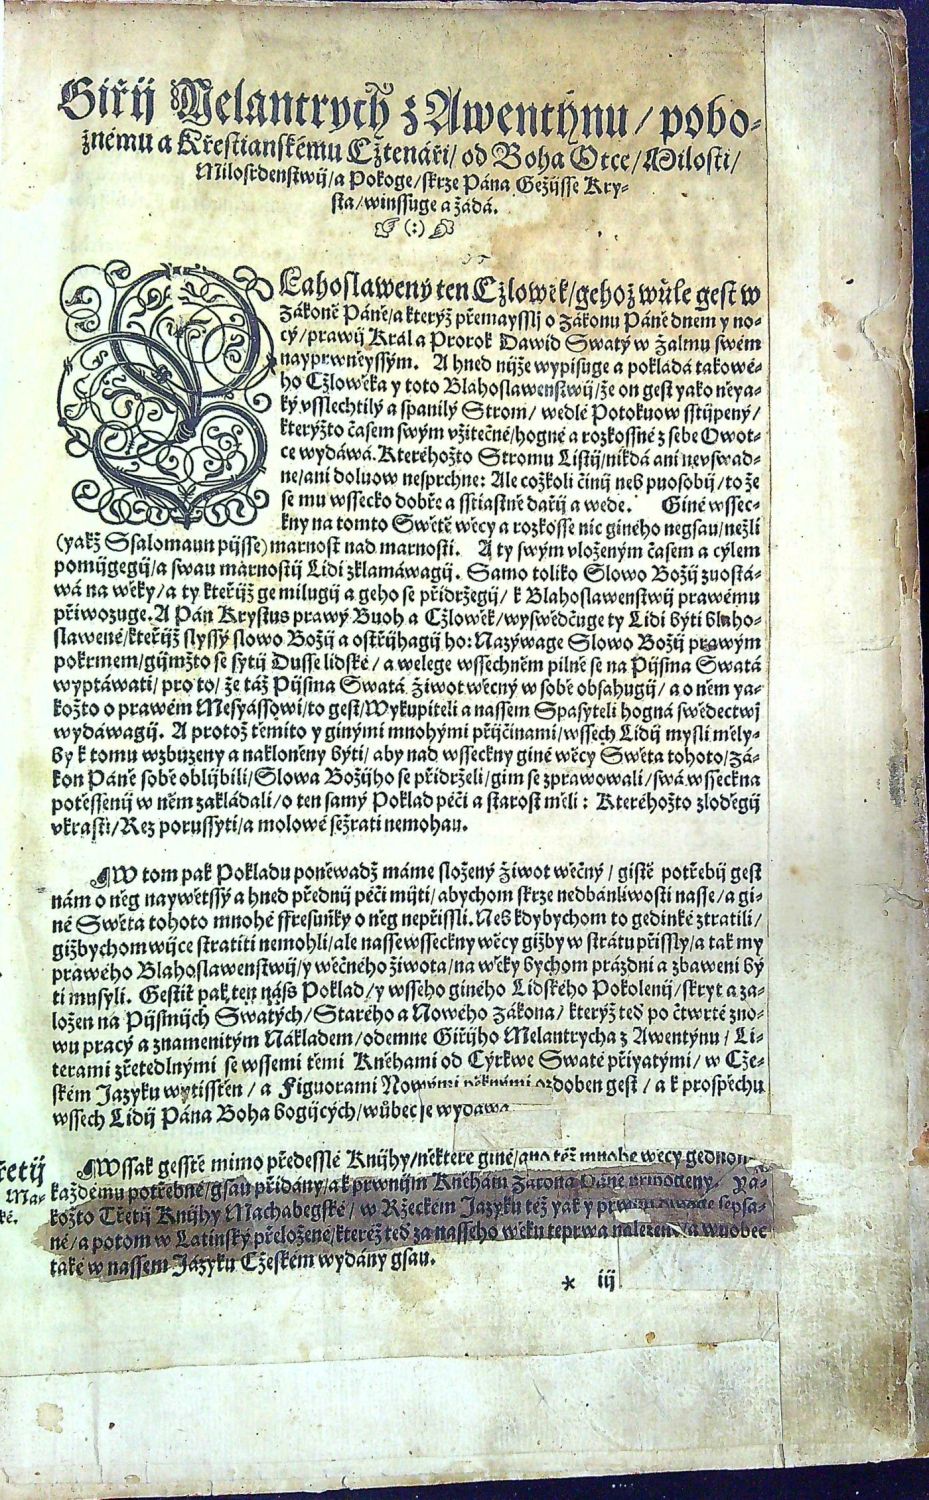 Giřij Melantrych z Awenthynu / pobo-
žnému a Křestianskému Cžtenáři / od Boha Otce / Milosti /
Milosrdenstwij / a Pokoge / skrze Pána Gežijsse Kry-
sta / winssuge a žádá.
(:)
BLahoslawený ten Cžlowěk / gehož wůle gest w
Zákoně Páně / a kterýž přemayssij o Zákonu Páně dnem y no-
cý / prawij Král a Prorok Dawid Swatý w Žalmu swém
nayprwněyssým. A hned nijže wypisuge a pokládá takowé-
ho Cžlowěka y toto Blahoslawenstwij / že on gest yako něya-
ký vsslechtilý a spanilý Strom / wedlé Potokuow sstijpený /
kterýžto časem swým vžitečné / hogné a rozkossné z sebe Owot-
ce wydáwá. Kteréhožto Stromu Listij / nikdá ani nevswad-
ne / ani doluow nesprchne: Ale cožkoli činij neb puosobij / to že
se mu wssecko dobře a sstiastně dařij a wede. Giné wssec-
kny na tomto Swětě wěcy a rozkosse nic giného negsau / nežli
(yakž Ssalomaun pijsse) marnost nad marnosti. A ty swým vloženým časem a cýlem
pomijgegij / a swau marnostij Lidi zklamáwagij. Samo toliko Slowo Božij zuostá-
wá na wěky / a ty kteřijž ge milugij a geho se přidržegij / k Blahoslawenstwij prawému
přiwozuge. A Pán Krystus prawý Buoh a Cžlowěk / wyswědčuge ty Lidi býti blaho-
slawené / kteřijž slyssý slowo Božij a ostřijhagij ho: Nazýwage Slowo Božij prawým
pokrmem / gijmžto se sytij Dusse lidské / a welege wssechněm pilně se na Pijsma Swatá
wyptáwati / pro to / že táž Pijsma Swatá Život wěcný w sobě obsahugij / a o něm ya-
kožto o prawém Mesyássowi / to gest / Wykupiteli a nassem Spasyteli hogná swědectwij
wydáwagij. A protož těmito y ginými mnohými přijčinami / wssech Lidij mysli měly-
by k tomu wzbuzeny a nakloněny býti / aby nad wsseckny giné wěcy Swěta tohoto / Zá-
kon Páně sobě oblijbili / Slowa Božijho se přidrželi / gim se zprawowali / swá wsseckna
potěssenij w něm zakládali / o ten samý Poklad péči a starost měli: Kteréhožto zloděgij
vkrasti / Rez porussyti / a molowé sežrati nemohau.
W tom pak Pokladu poněwadž máme složený Život wěčný / gistě potřebij gest
nám o něg naywětssý a hned přednij péči mijti / abychom skrze nedbánliwosti nasse / a gi-
né Swěta tohoto mnohé ffresuňky o něg nepřissli. Neb kdybychom to gedinké ztratili /
gižbychom wijce stratiti nemohli / ale nasse wsseckny wěcy gižby w strátu přissly / a tak my
prawého Blahoslawenstwij / y wěčného života / na wěky bychom prázdni a zbaweni bý
ti musyli. Gestiť pak ten náss Poklad / y wsseho giného Lidského Pokolenij / skryt a za-
ložen na Pijsmijch Swatých / Starého a Nowého Zákona / kterýž teď po čtwrté zno-
wu pracý a znamenitým Nákladem / odemne Giřijho Melantrycha z Awentýnu / Li-
terami zřetedlnými se wssemi těmi Kněhami od Cýrkwe Swaté přiyatými / w Cže-
ském Jazyku wytisstěn / a Figuorami Nowými pěknými ozdoben gest / a k prospěchu
wssech Lidij Pána Boha bogijcých / wůbec ge wydáwá
Wssak gesstě mimo předesslé Knijhy / některé giné / ano též mnohé wěcy gednomu
každému potřebné / gsau přidány / a k prwnijm Kněhám Zákona Páně přiwogeny. Ya-
kožto Třetij Knijhy Machabegské / w Ržeckém Jazyku též yak y prwnij dwoge sepsa-
né / a potom w Latinský přeložené / kteréž teď za nasseho wěku teprwa nalezené / a wuobec
také w nassem Jázyku Cžeském wydány gsau.
řetij
Ma-
ké.
* iij